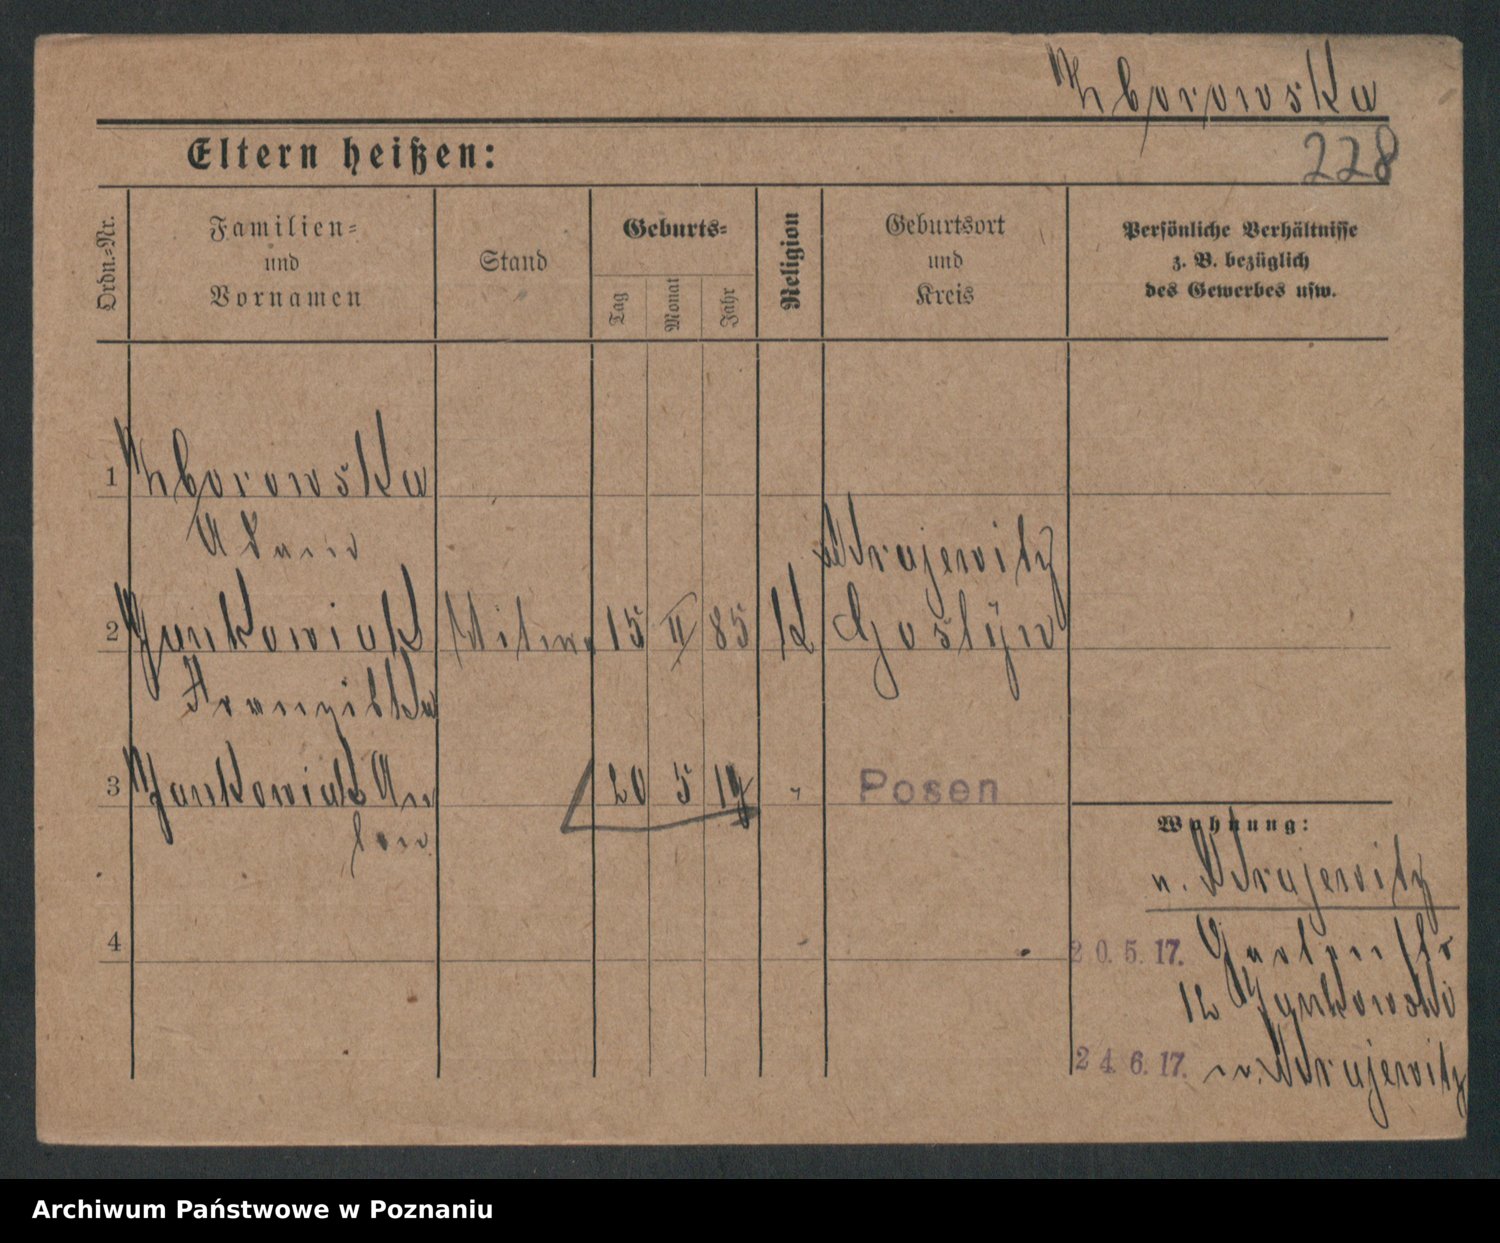 Zborowska
228
Eltern heißen:
Ordn.-Nr.
Familien-
und
Vornamen
Stand
Geburts-
Tag
Monat
Jahr
Religion
Geburtsort
und
Kreis
Persönliche Verhältnisse
z. B. bezüglich
des Gewerbes usw.
1 Zborowska
2 Jankowiak 15 II 85 K Gostÿn
Franziska
3 Jankowiak An 20 5 17 " Posen
ton
Wohnung:
4
20. 5. 17.
12 Jankowski
24. 6. 17.
Archiwum Państwowe w Poznaniu